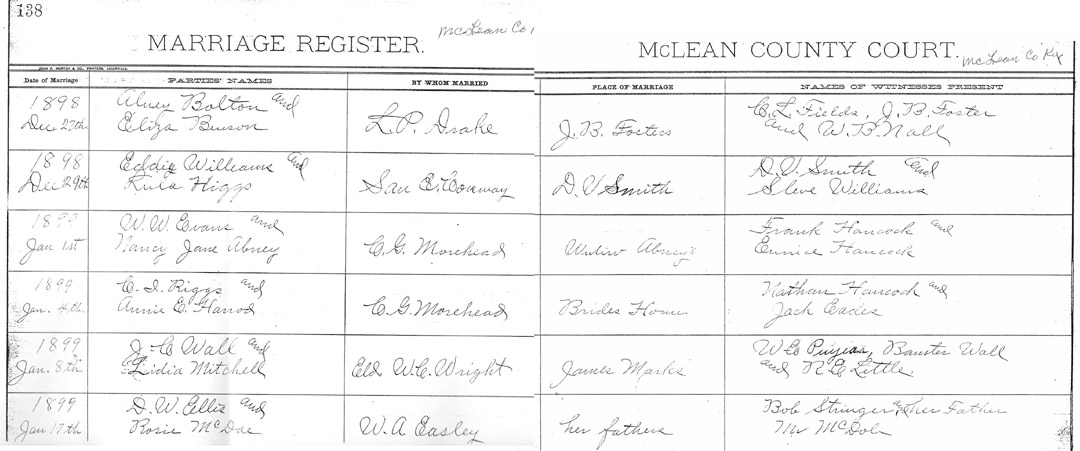 138
McLean Co
MARRIAGE REGISTER.
McLEAN COUNTY COURT.
McLean Co Ky
JOHN P. MORTON & CO., PRINTERS, LOUISVILLE.
Date of Marriage PARTIES' NAMES BY WHOM MARRIED PLACE OF MARRIAGE NAMES OF WITNESSES PRESENT
1898 Abney Bolton and C. L. Fields, J. B. Foster
Dec 27th Eliza Benson L. P. Drake J. B. Fosters and W. B. Nall
1898 Eddie Williams and D. V. Smith and
Dec 29th Lula Higgs E. Conway D. V Smith Steve Williams
1899 W. W. Evans and Frank Hancock and
Jan 1st Nancy Jane Abney C. G. Morehead Abney's Eunice Hancock
1899 C. I. Riggs and Nathan Hancock and
Jan. 4th Annie E. Harrod C. G. Morehead Brides Home Jack Eades
1899 J. C Wall and W. E Puyear, Wall
Jan. 8th Lidia Mitchell Eld W. C. Wright James Marks and R. E. Little
1899 D. W. Ellis and Bob Stringer and her Father
Jan 17th Rosie W. A Easley her fathers Mr